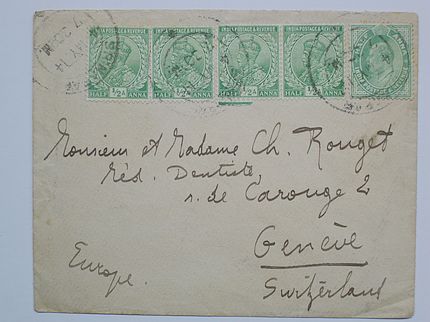 INDIA POSTAGE & REVENUE INDIA POSTAGE & REVENUE INDIA POSTAGE & REVENUE INDIA POSTAGE & REVENUE
HALF ½A ANNA HALF ½A ANNA HALF ½A ANNA HALF ½A ANNA
Monsieur et Madame Ch. Rouget
Méd. Dentiste,
r. de Carouge 2
Genève
Europe.
Switzerland